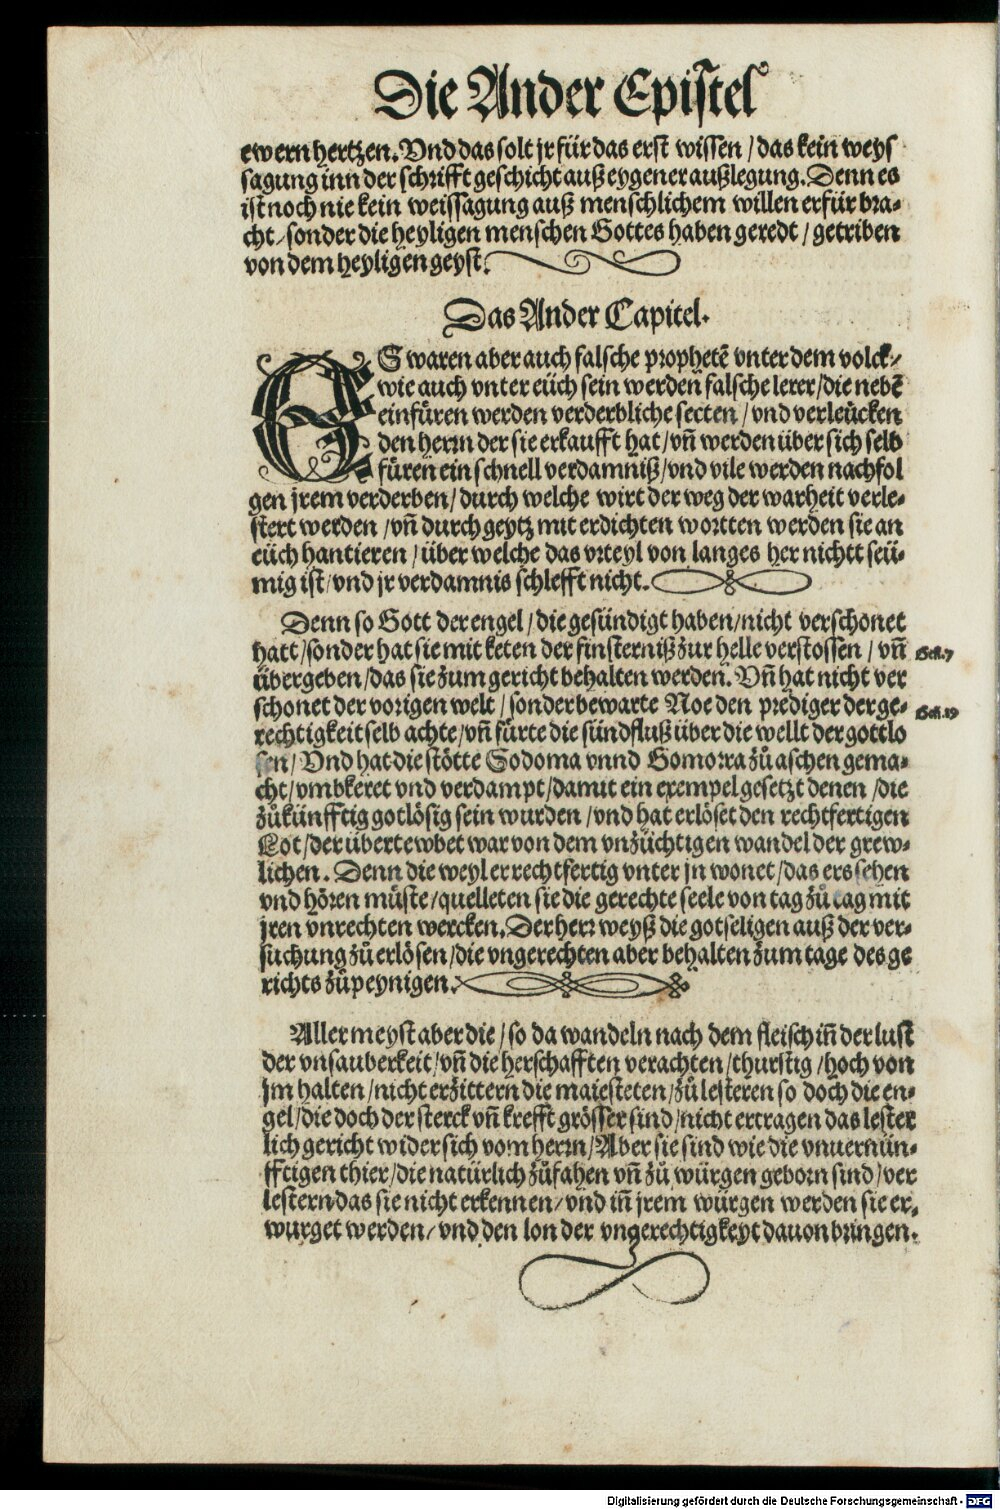 Die Ander Epistel
ewern hertzen. Vnd das solt jr für das erst wissen / das kein weys
sagung inn der schrifft geschicht auß eygener außlegung. Denn es
ist noch nie kein weissagung auß menschlichem willen erfür bra-
cht / sonder die heyligen menschen Gottes haben geredt / getriben
von dem heyligen geyst.
Das Ander Capitel.
ES waren aber auch falsche prophetē vnter dem volck /
wie auch vnter eüch sein werden falsche lerer / die nebē
einfüren werden verderbliche secten / vnd verleücken
den herrn der sie erkaufft hat / vñ werden über sich selb
füren ein schnell verdamniß / vnd vile werden nachfol
gen jrem verderben / durch welche wirt der weg der warheit verle-
stert werden / vñ durch geytz mit erdichten wortten werden sie an
eüch hantieren / über welche das vrteyl von langes her nichtt seü-
mig ist / vnd jr verdamnis schlefft nicht.
Denn so Gott der engel / die gesündigt haben / nicht verschonet
hatt / sonder hat sie mit keten der finsterniß zur helle verstossen / vñ
Gen. 7
übergeben / das sie zum gericht behalten werden. Vñ hat nicht ver
schonet der vorigen welt / sonder bewarte Noe den prediger der ge-
Gen. 19
rechtigkeit selb achte / vñ fürte die sündfluß über die wellt der gottlo
sen / Vnd hat die stötte Sodoma vnnd Gomorra zů aschen gema-
cht / vmbkeret vnd verdampt / damit ein exempel gesetzt denen / die
zůkünfftig gotlösig sein wurden / vnd hat erlöset den rechtfertigen
Lot / der übertewbet war von dem vnzüchtigen wandel der grew-
lichen. Denn die weyl er rechtfertig vnter jn wonet / das ers sehen
vnd hören müste / quelleten sie die gerechte seele von tag zů tag mit
jren vnrechten wercken. Der herr weyß die gotseligen auß der ver-
suchung zů erlösen / die vngerechten aber behalten zum tage des ge
richts zů peynigen.
Aller meyst aber die / so da wandeln nach dem fleisch iñ der lust
der vnsauberkeit / vñ die herschafften verachten / thurstig / hoch von
jm halten / nicht erzittern die maiesteten / zů lesteren so doch die en-
gel / die doch der sterck vñ krefft grösser sind / nicht ertragen das lester
lich gericht wider sich vom herrn / Aber sie sind wie die vnuernün-
fftigen thier / die natürlich zů fahen vñ zů würgen geborn sind / ver
lestern das sie nicht erkennen / vnd iñ jrem würgen werden sie er-
wurget werden / vnd den lon der vngerechtigkeyt dauon bringen.
Digitalisierung gefördert durch die Deutsche Forschungsgemeinschaft - DFG